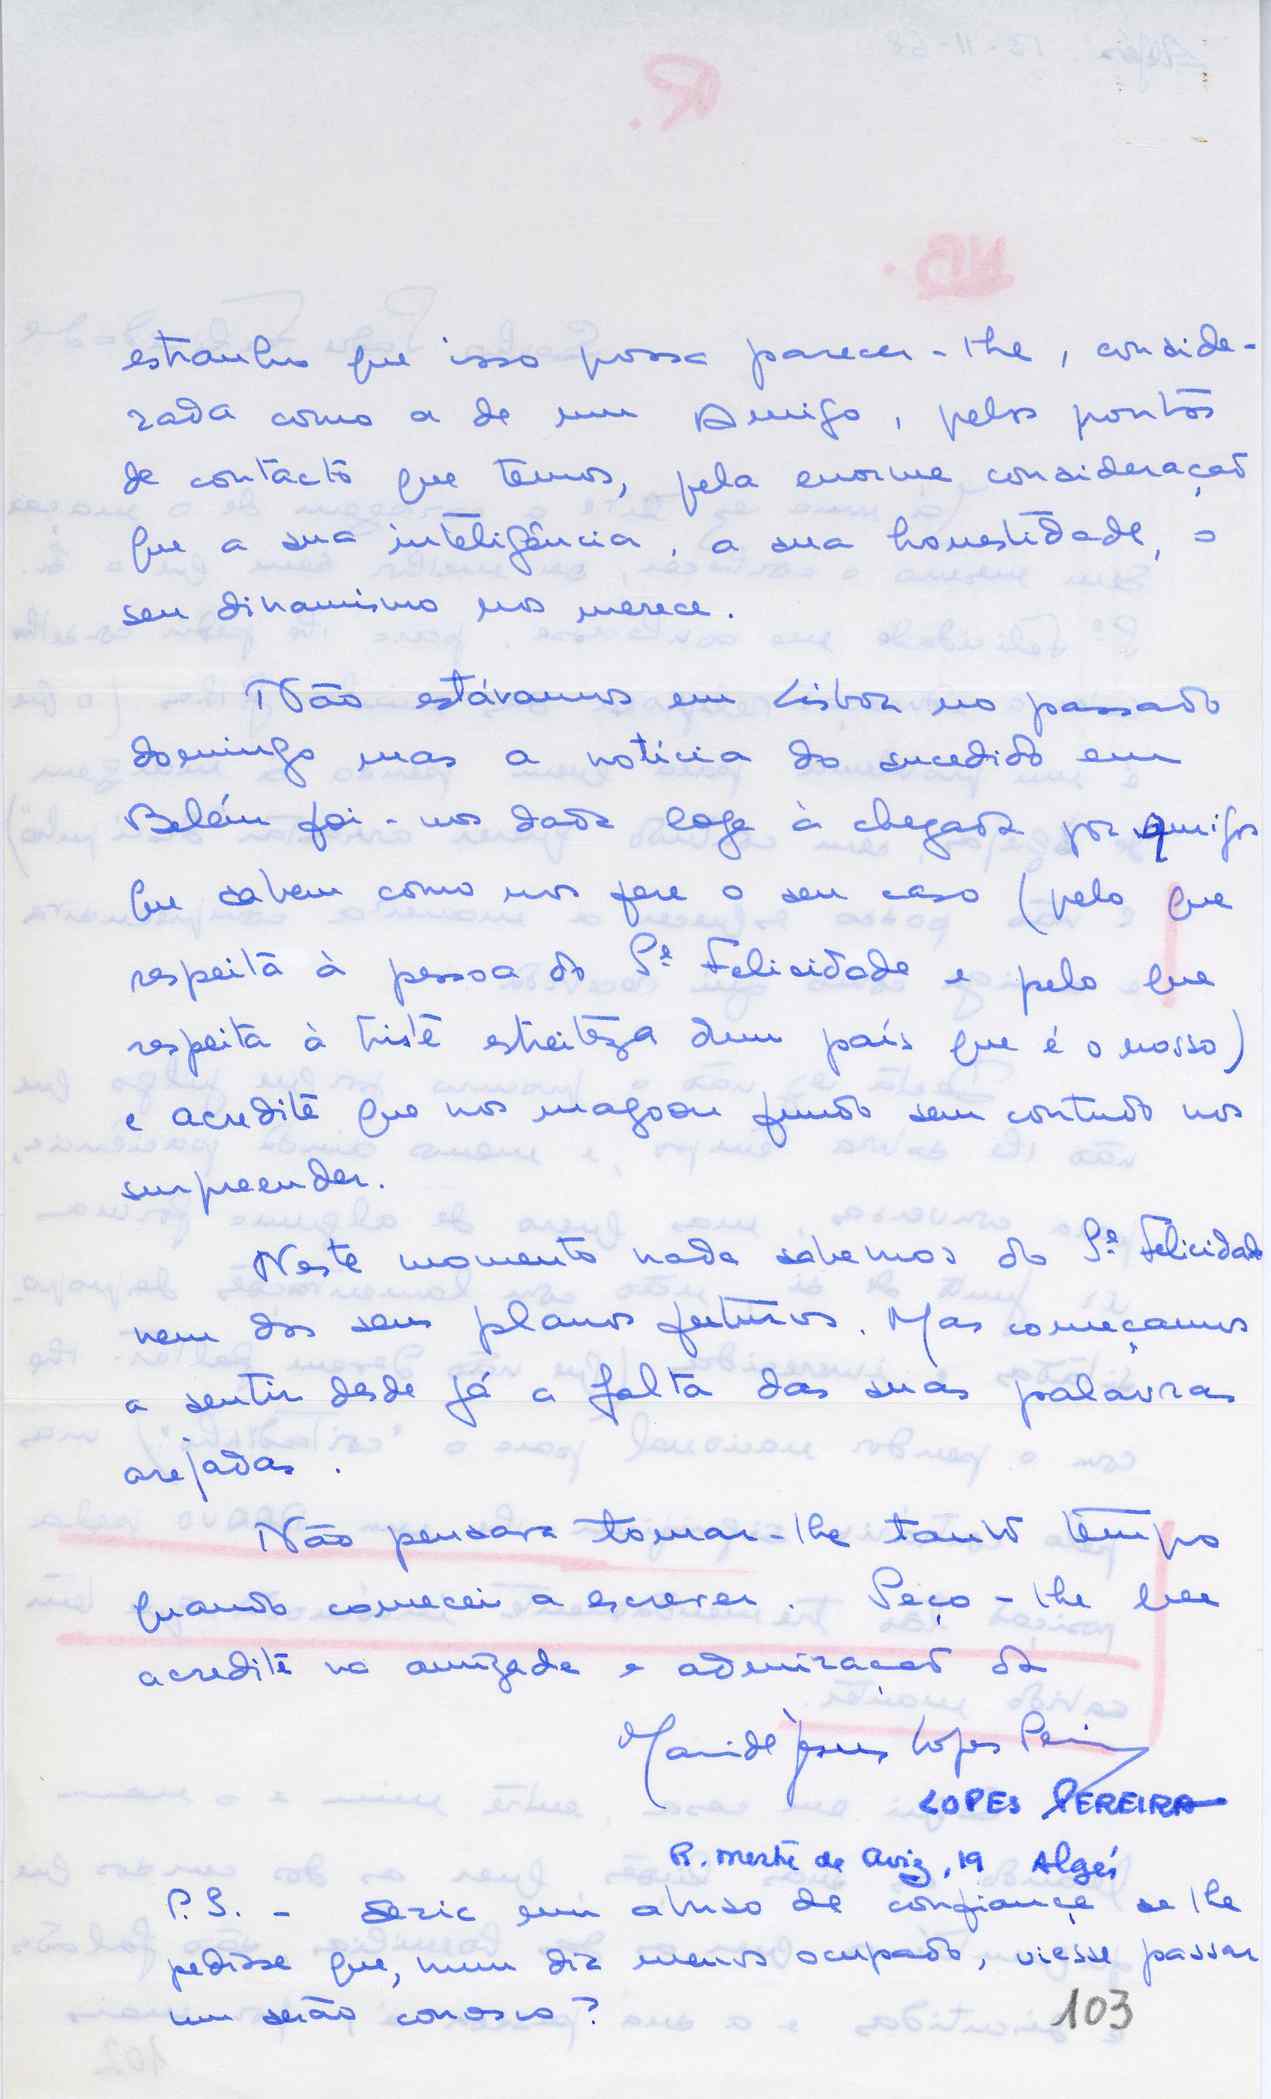 estranho que isso possa parecer-lhe, conside-
rada como a de um Amigo, pelos pontos
de contacto que temos, pela enorme consideração
que a sua inteligência, a sua honestidade, o
seu dinamismo nos merece.
Não estávamos em Lisboa no passado
domingo mas a notícia do sucedido em
Belém foi-nos dada logo à chegada por amigos
que sabem como nos fere o seu caso (pelo que
respeita à pessoa do Pe. Felicidade e pelo que
respeita à triste estreiteza dum país que é o nosso)
e acredite que nos magoou fundo sem contudo nos
surpreender.
Neste momento nada sabemos do Pe. Felicidade
nem dos seus planos futuros. Mas começamos
a sentir desde já a falta das suas palavras
arejadas.
Não pensara tomar-lhe tanto tempo
quando comecei a escrever. Peço-lhe que
acredite na amizade e admiração da
Maria de Jesus Lopes Pereira
LOPES PEREIRA
R. Mestre de Aviz, 19 Algés
P.S. - Seria um abuso de confiança se lhe
pedisse que, num dia menos ocupado, viesse passar
um serão conosco?
103